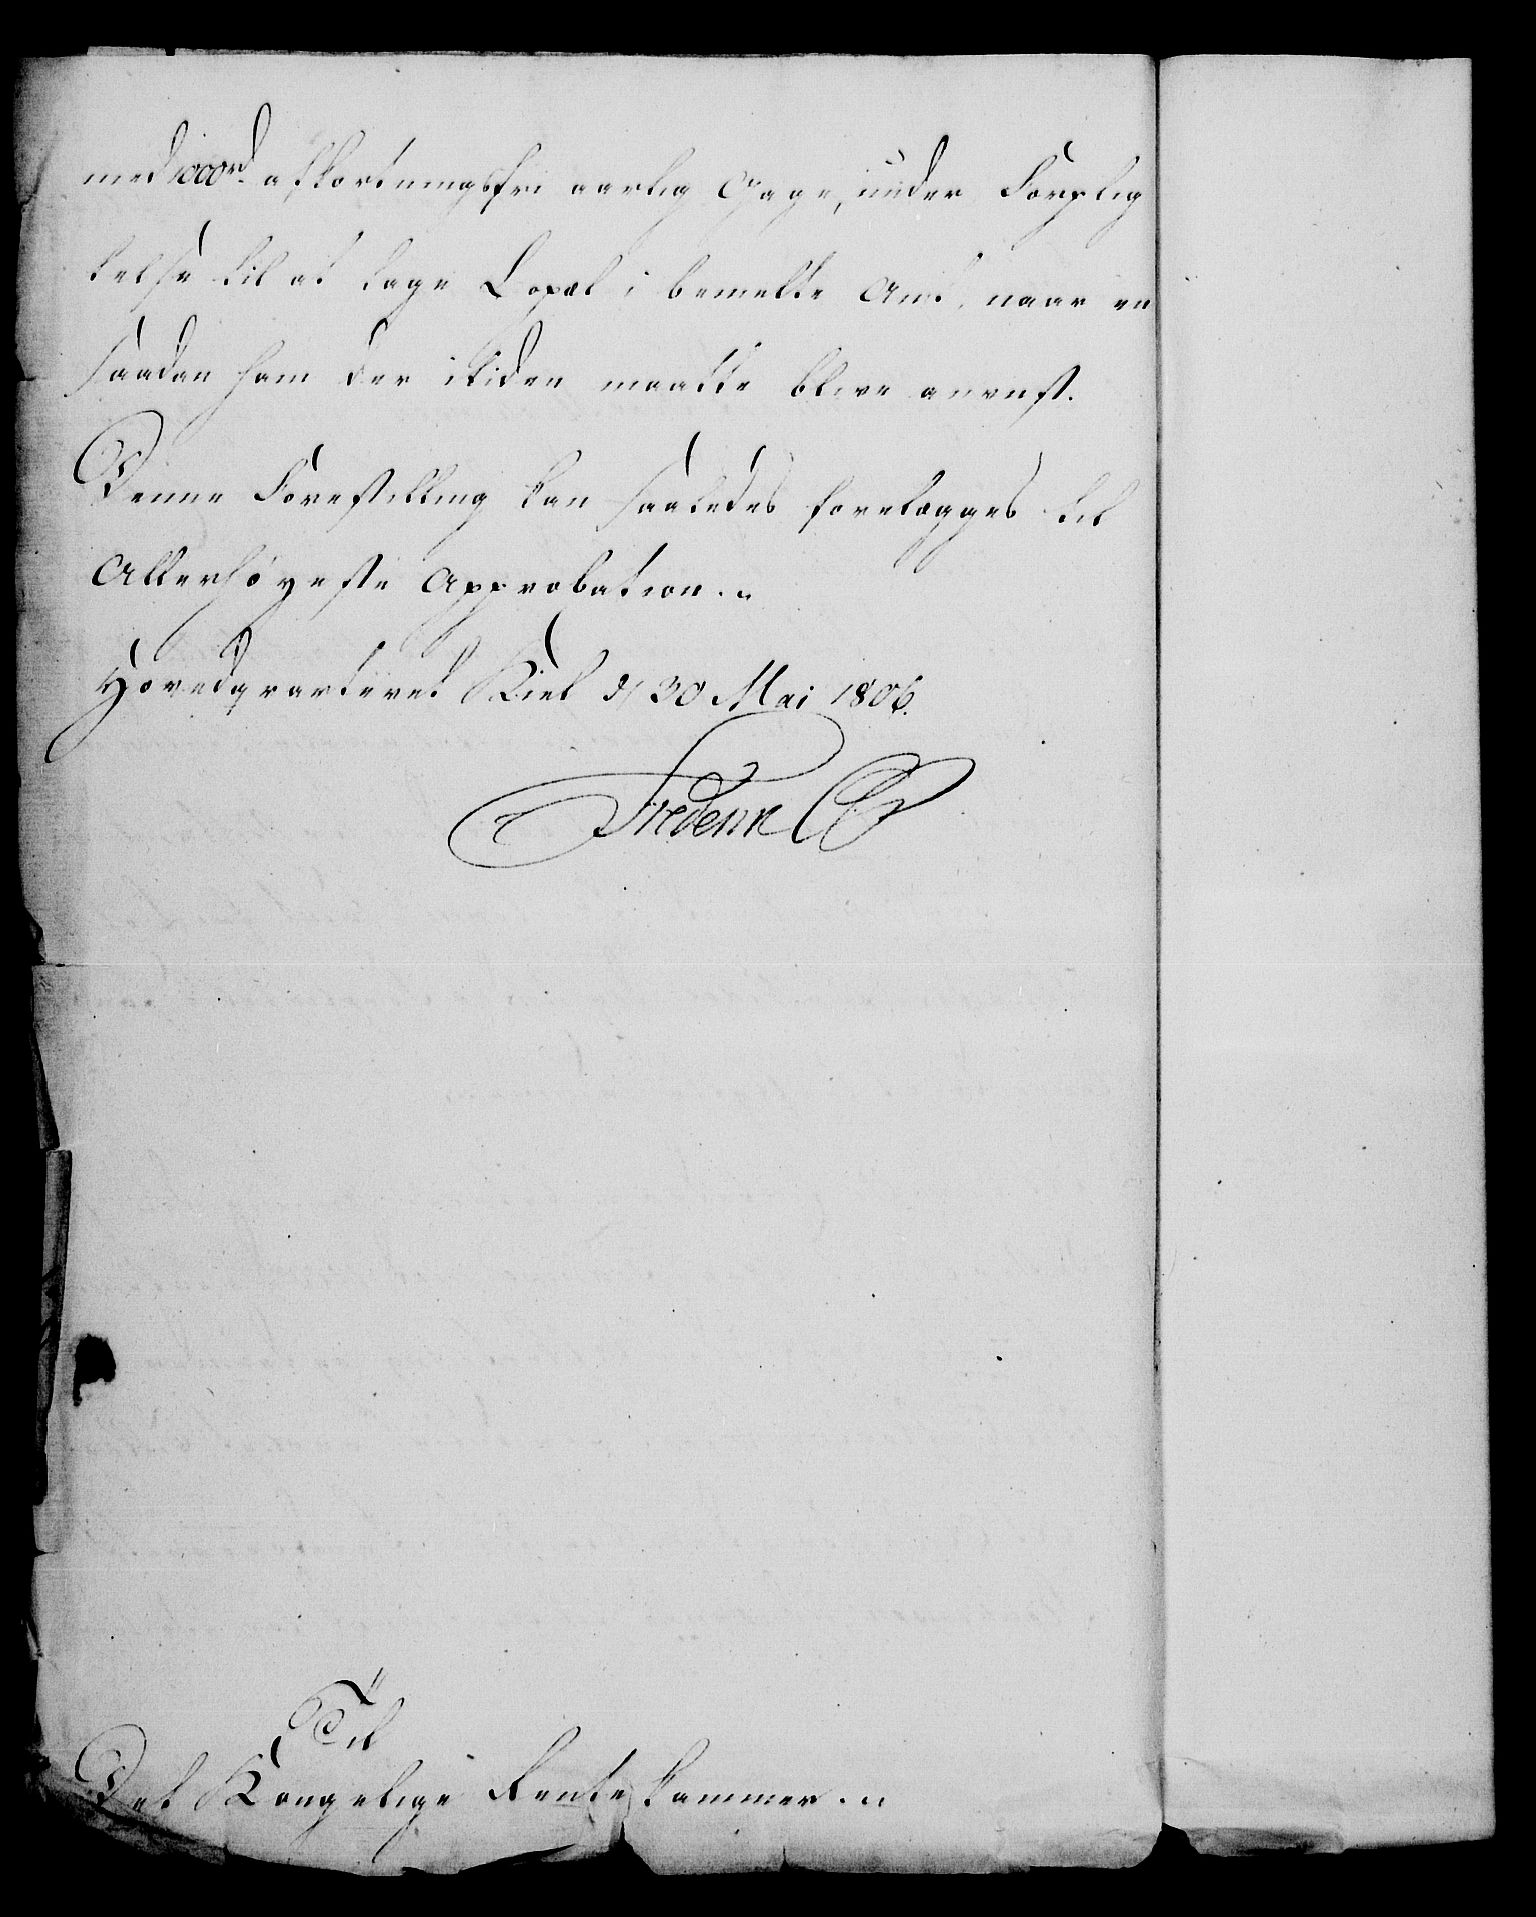 med 1000rd. afkortningsfri aarlig Gage, under Forplig
telse til at tage Bopæl i bemelte Amt, naar en
saadan ham der itiden maatte blive anvist.
Denne Forestilling kan saaledes forelægges til
Allerhøyeste Approbation.
Hovedqvarteret Kiel d 30 Mai 1806.
Frederik
Til
Det Kongelige Rentekammer.